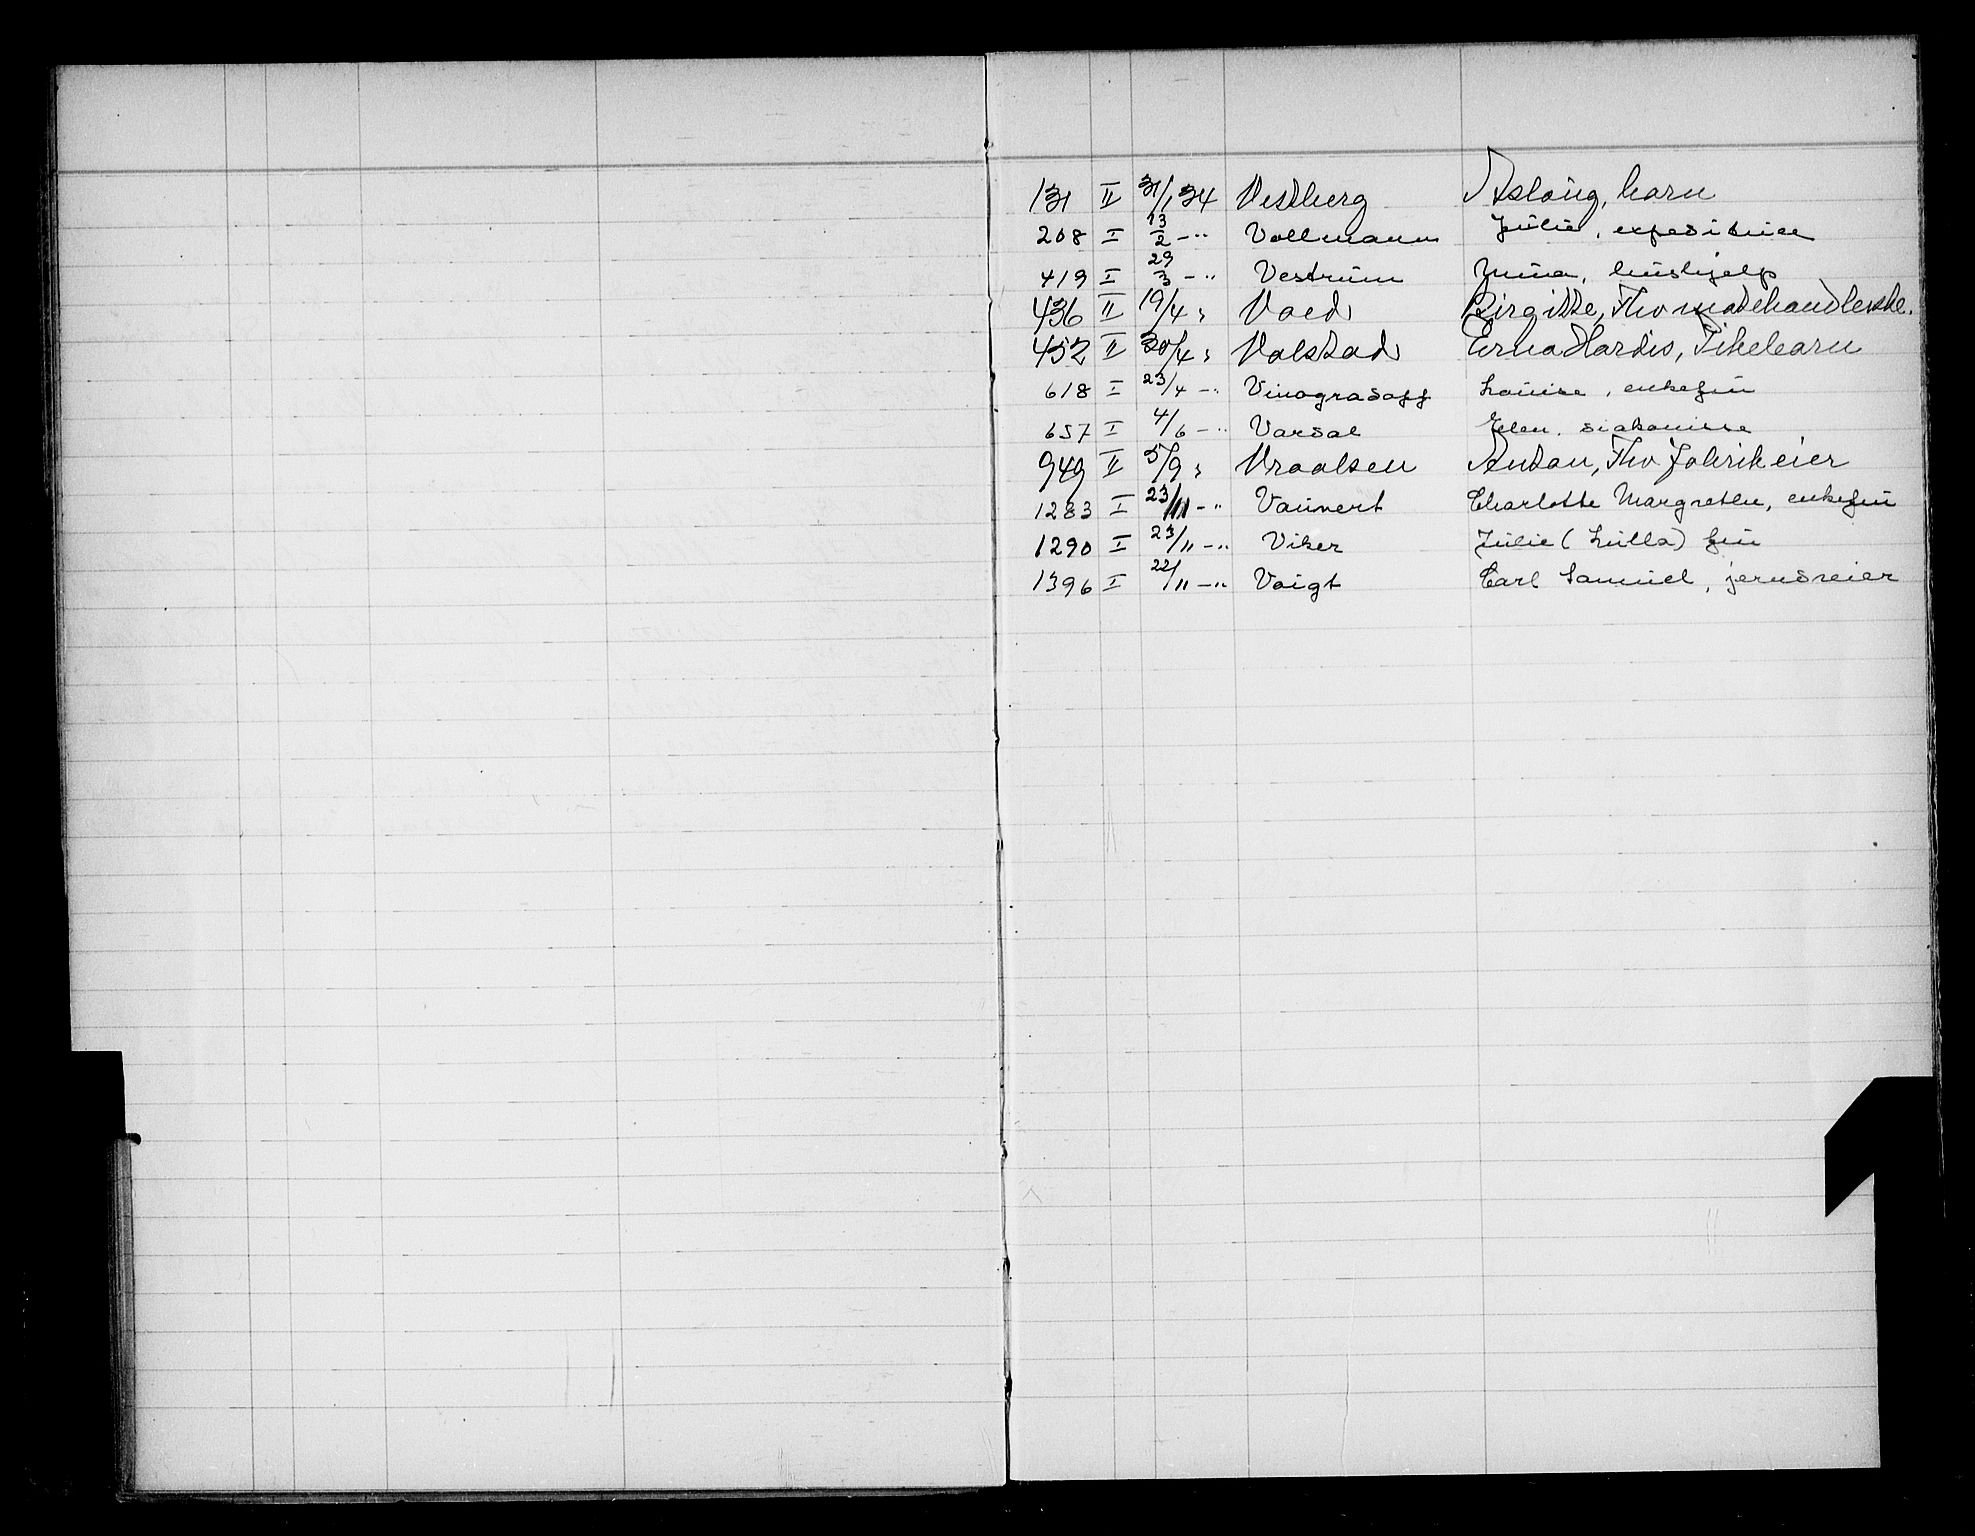 131 II 31/1 34 Vestberg Aslaug, barn
208 I 13/2 -" Vollmann Julie, expeditrice
419 I 29/3 -" Vestrum Anna, hushjelp
436 II 19/4 " Voed Birgitte, Fhv motehandlerske.
452 II 30/4 " Valstad Erna Hardis, Pikebarn
618 I 23/4 -" Vinogradoff Louise, enkefru
657 I 4/6 -" Vardal Elen, diakonisse
949 II 5/9 " Vraalsen Anton, Fhv fabrikeier
1283 I 23/11 -" Vaunert Charlotte Margrethe, enkefru
1290 I 23/11 -" Viker Julie (Lulla) fru
1396 I 22/11 -" Voigt Carl Samuel, jerndreier